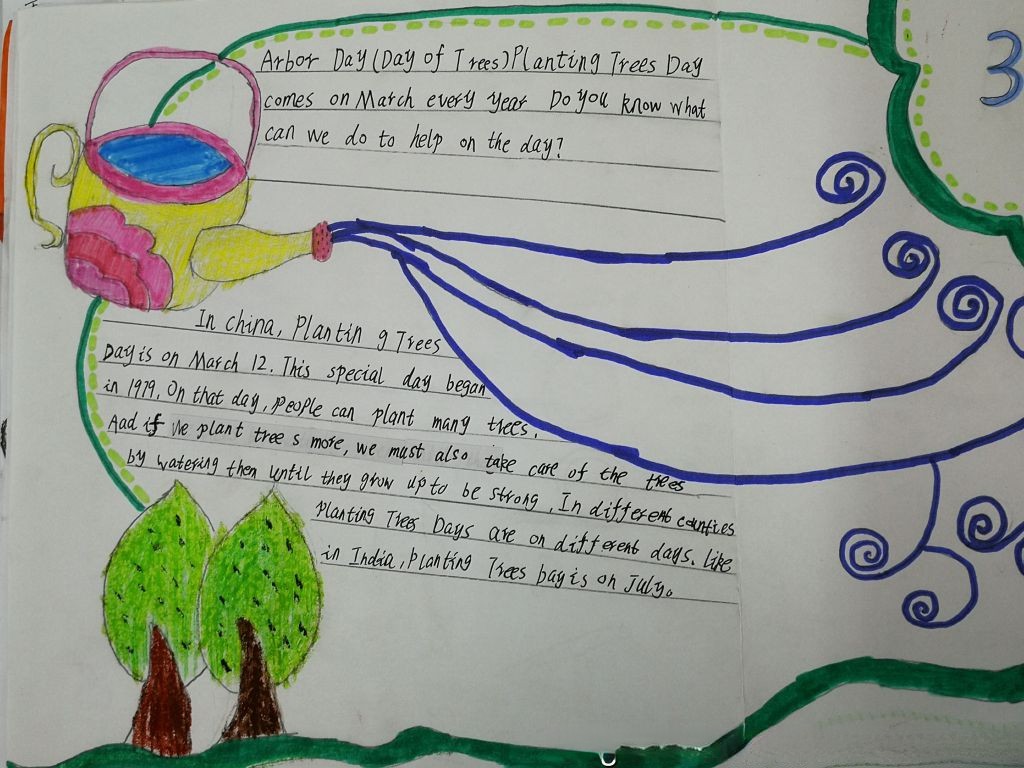 Arbor Day (Day of Trees) Planting Trees Day
comes on March every year Do you know what
can we do to help on the day?
3
In china, Plantin g Trees
Day is on March 12. This special day began
in 1979. On that day, people can plant many trees.
Aad if we plant tree s more, we must also take care of the trees
by watering then until they grow up to be strong. In different counties
Planting Trees Days are on different days. like
in India, Planting Trees bay is on July.